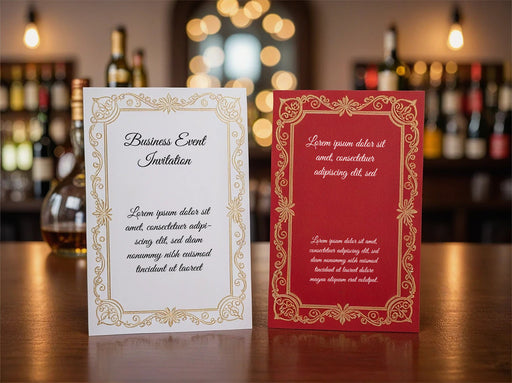 Business Event
Invitation
Lorem ipsum dolor sit
amet, consectetuer adipi-
scing elit, sed diam
nonummy nibh euismod
tincidunt ut laoreet
Lorem ipsum dolor sit
amet, consectetuer
adipiscing elit, sed
Lorem ipsum dolor sit
amet, consectetuer
adipiscing elit, sed diam
nonummy nibh euismod
tincidunt ut laoreet dolore
magna aliquam erat volutpat.